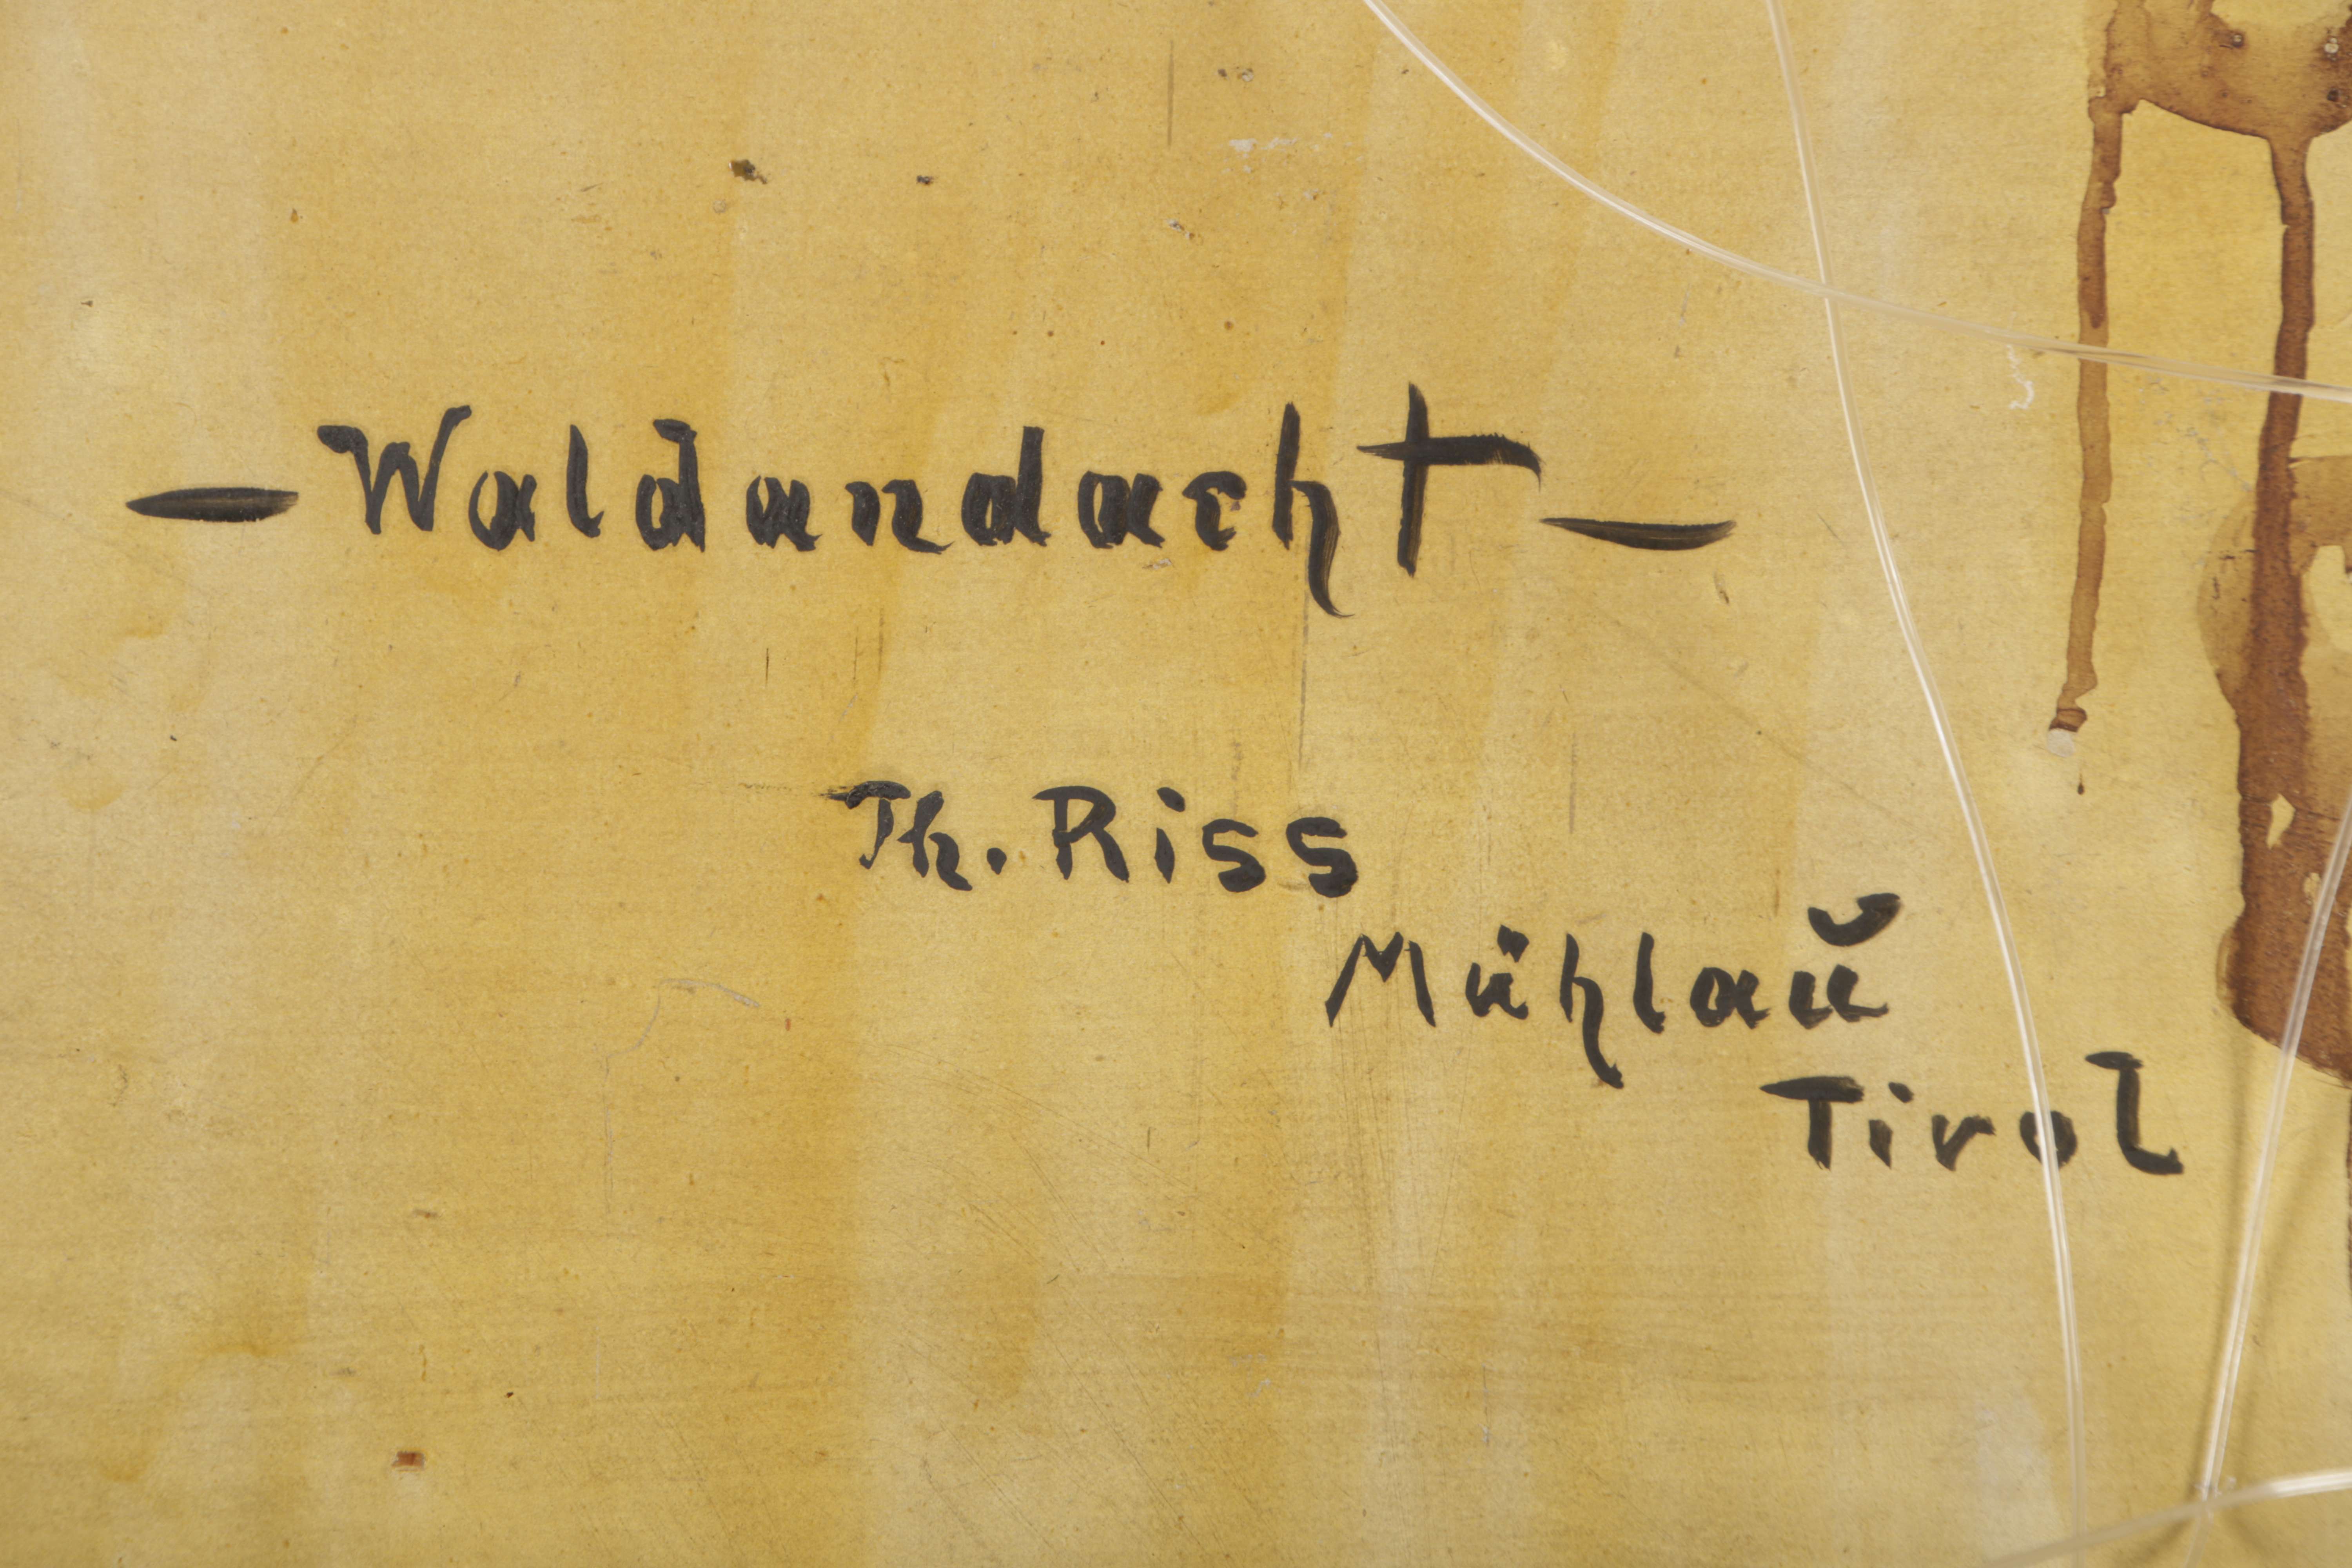 — Waldandacht —
Th. Riss
Mühlau
Tirol